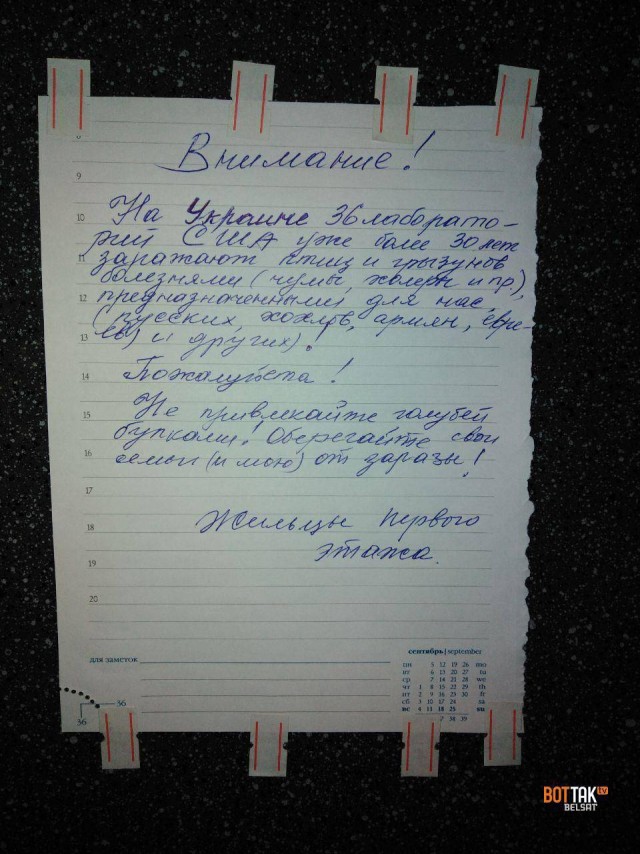 Внимание!
9
10
На Украине 36 лаборато-
рий США уже более 30 лет
11
заражают птиц и грызунов
болезнями (чумы, холеры и пр.),
12
предназначенными для нас,
(русских, хохлов, армян, евре-
13
ев) и других)!
14
Пожалуйста!
15
Не привлекайте голубей
булками! Оберегайте свои
16
семьи (и мою) от заразы!
17
18
Жильцы первого
этажа.
19
20
для заметок
сентябрь | september
пн 5 12 19 26 mo
вт 6 13 20 27 tu
ср 7 14 21 28 we
чт 1 8 15 22 29 th
пт 2 9 16 23 30 fr
сб 3 10 17 24 sa
вс 4 11 18 25 su
36
36
ВОТТАК TV
BELSAT